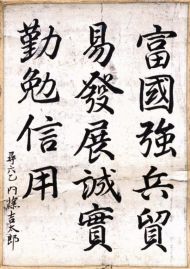 富國強兵貿
易發展誠實
勤勉信用
尋六乙 内條吉太郎